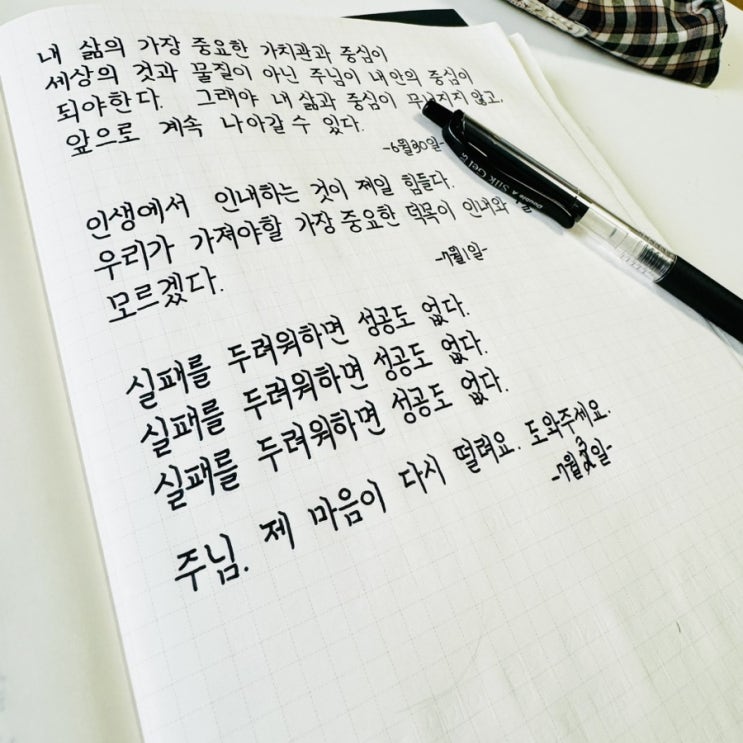 내 삶의 가장 중요한 가치관과 중심이
세상의 것과 물질이 아닌 주님이 내안의 중심이
되야한다. 그래야 내 삶과 중심이 무너지지 않고,
앞으로 계속 나아갈 수 있다.
-6월30일-
인생에서 인내하는 것이 제일 힘들다.
우리가 가져야할 가장 중요한 덕목이 인내와
모르겠다.
-7월1일-
실패를 두려워하면 성공도 없다.
실패를 두려워하면 성공도 없다.
실패를 두려워하면 성공도 없다.
주님. 제 마음이 다시 떨려요. 도와주세요.
-7월 일-
Silk Gel